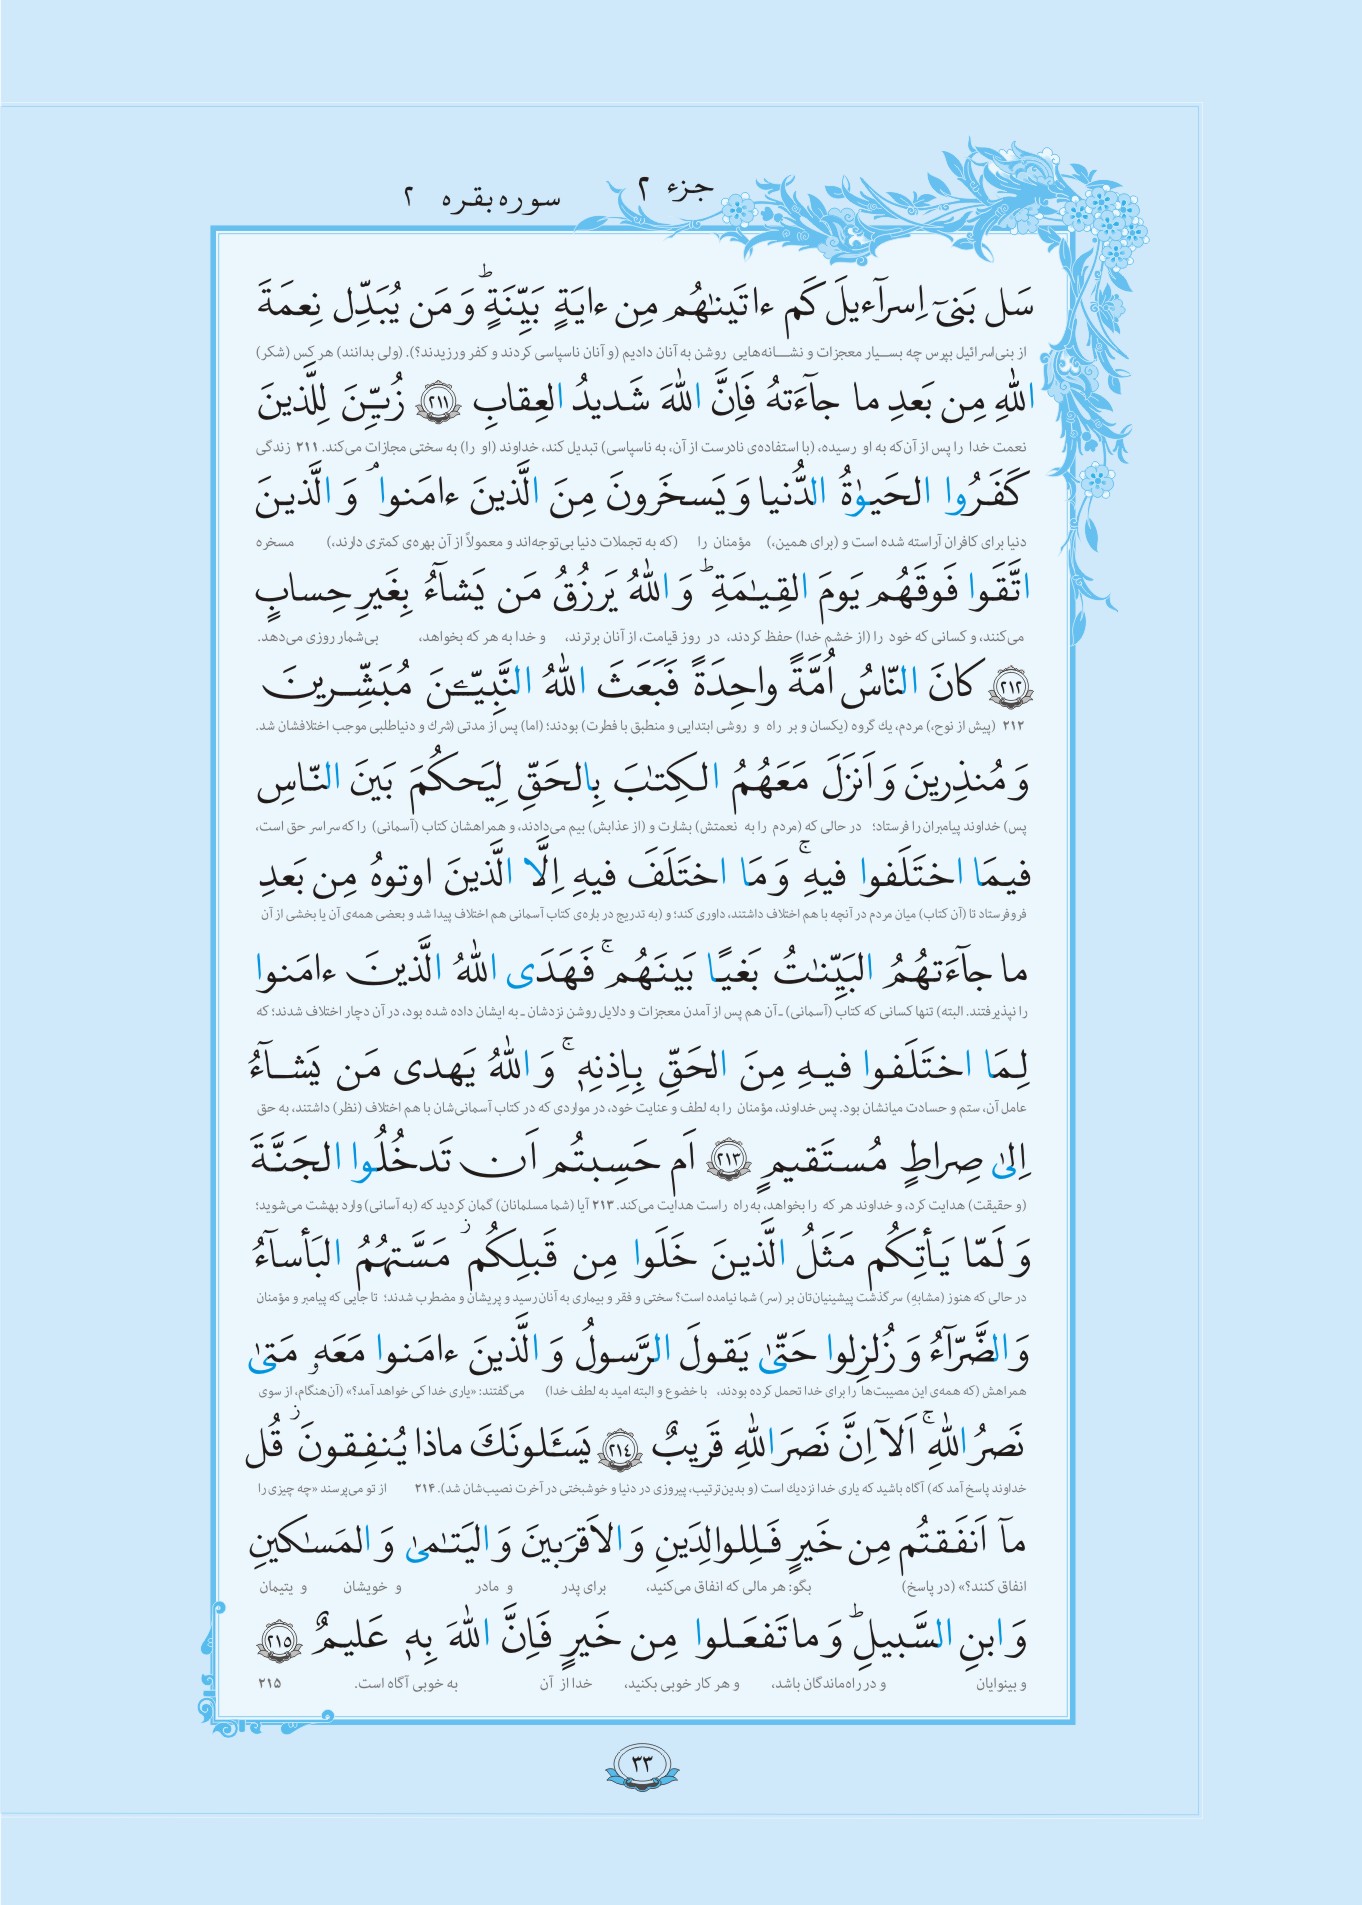 جزء ۲
سوره بقره ۲
سَل بَنىٓ اِسرآءيلَ كَم ءاتَينٰهُم مِن ءايَةٍ بَيِّنَةٍ ؕ وَ مَن يُبَدِّل نِعمَةَ
از بنی‌اسرائیل بپرس چه بسیار معجزات و نشانه‌هایی روشن به آنان دادیم (و آنان ناسپاسی کردند و کفر ورزیدند؟). (ولی بدانند) هر کس (شکر)
اللّٰهِ مِن بَعدِ ما جآءَتهُ فَاِنَّ اللّٰهَ شَديدُ العِقابِ ﴿٢١١﴾ زُيِّنَ لِلَّذينَ
نعمت خدا را پس از آن‌که به او رسیده، (با استفاده‌ی نادرست از آن، به ناسپاسی) تبدیل کند، خداوند (او را) به سختی مجازات می‌کند. ۲۱۱ زندگی
كَفَرُوا الحَيوٰةُ الدُّنيا وَ يَسخَرونَ مِنَ الَّذينَ ءامَنوا ۘ وَ الَّذينَ
دنیا برای کافران آراسته شده است و (برای همین،) مؤمنان را (که به تجملات دنیا بی‌توجه‌اند و معمولاً از آن بهره‌ی کمتری دارند،) مسخره
اتَّقَوا فَوقَهُم يَومَ القِيٰمَةِ ؕ وَ اللّٰهُ يَرزُقُ مَن يَشآءُ بِغَيرِ حِسابٍ
می‌کنند، و کسانی که خود را (از خشم خدا) حفظ کردند، در روز قیامت، از آنان برترند، و خدا به هر که بخواهد، بی‌شمار روزی می‌دهد.
﴿٢١٢﴾ كانَ النّاسُ اُمَّةً واحِدَةً فَبَعَثَ اللّٰهُ النَّبِيّـٖنَ مُبَشِّرينَ
۲۱۲ (پیش از نوح،) مردم، یك گروه (یکسان و بر راه و روشی ابتدایی و منطبق با فطرت) بودند؛ (اما) پس از مدتی (شرك و دنیاطلبی موجب اختلافشان شد.
وَ مُنذِرينَ وَ اَنزَلَ مَعَهُمُ الكِتٰبَ بِالحَقِّ لِيَحكُمَ بَينَ النّاسِ
پس) خداوند پیامبران را فرستاد؛ در حالی که (مردم را به نعمتش) بشارت و (از عذابش) بیم می‌دادند، و همراهشان کتاب (آسمانی) را که سراسر حق است،
فيمَا اختَلَفوا فيهِ ۚ وَ مَا اختَلَفَ فيهِ اِلَّا الَّذينَ اوتوهُ مِن بَعدِ
فروفرستاد تا (آن کتاب) میان مردم در آنچه با هم اختلاف داشتند، داوری کند؛ و (به تدریج در باره‌ی کتاب آسمانی هم اختلاف پیدا شد و بعضی همه‌ی آن یا بخشی از آن
ما جآءَتهُمُ البَيِّنٰتُ بَغيًا بَينَهُم ۚ فَهَدَى اللّٰهُ الَّذينَ ءامَنوا
را نپذیرفتند. البته) تنها کسانی که کتاب (آسمانی) ـ آن هم پس از آمدن معجزات و دلایل روشن نزدشان ـ به ایشان داده شده بود، در آن دچار اختلاف شدند؛ که
لِمَا اختَلَفوا فيهِ مِنَ الحَقِّ بِاِذنِهٖ ۚ وَ اللّٰهُ يَهدى مَن يَشآءُ
عامل آن، ستم و حسادت میانشان بود. پس خداوند، مؤمنان را به لطف و عنایت خود، در مواردی که در کتاب آسمانی‌شان با هم اختلاف (نظر) داشتند، به حق
اِلىٰ صِراطٍ مُستَقيمٍ ﴿٢١٣﴾ اَم حَسِبتُم اَن تَدخُلُوا الجَنَّةَ
(و حقیقت) هدایت کرد، و خداوند هر که را بخواهد، به راه راست هدایت می‌کند. ۲۱۳ آیا (شما مسلمانان) گمان کردید که (به آسانی) وارد بهشت می‌شوید؛
وَ لَمّا يَأتِكُم مَثَلُ الَّذينَ خَلَوا مِن قَبلِكُم ز مَسَّتهُمُ البَأسآءُ
در حالی که هنوز (مشابهِ) سرگذشت پیشینیان‌تان بر (سر) شما نیامده است؟ سختی و فقر و بیماری به آنان رسید و پریشان و مضطرب شدند؛ تا جایی که پیامبر و مؤمنان
وَ الضَّرّآءُ وَ زُلزِلوا حَتّىٰ يَقولَ الرَّسولُ وَ الَّذينَ ءامَنوا مَعَهٗ مَتىٰ
همراهش (که همه‌ی این مصیبت‌ها را برای خدا تحمل کرده بودند، با خضوع و البته امید به لطف خدا) می‌گفتند: «یاری خدا کی خواهد آمد؟» (آن‌هنگام، از سوی
نَصرُ اللّٰهِ ۚ اَلآ اِنَّ نَصرَ اللّٰهِ قَريبٌ ﴿٢١٤﴾ يَسـَٔلونَكَ ماذا يُنفِقونَ ز قُل
خداوند پاسخ آمد که) آگاه باشید که یاری خدا نزدیك است (و بدین‌ترتیب، پیروزی در دنیا و خوشبختی در آخرت نصیب‌شان شد). ۲۱۴ از تو می‌پرسند «چه چیزی را
مآ اَنفَقتُم مِن خَيرٍ فَلِلوالِدَينِ وَ الاَقرَبينَ وَ اليَتٰمىٰ وَ المَسٰكينِ
انفاق کنند؟» (در پاسخ) بگو: هر مالی که انفاق می‌کنید، برای پدر و مادر و خویشان و یتیمان
وَ ابنِ السَّبيلِ ؕ وَ ما تَفعَلوا مِن خَيرٍ فَاِنَّ اللّٰهَ بِهٖ عَليمٌ ﴿٢١٥﴾
و بینوایان و در راه‌ماندگان باشد، و هر کار خوبی بکنید، خدا از آن به خوبی آگاه است. ۲۱۵
۳۳